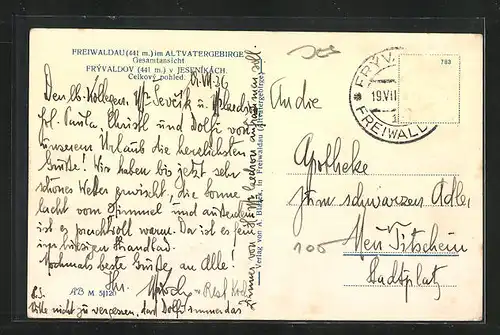 FREIWALDAU (441 m.) im ALTVATERGEBIRGE
Gesamtansicht
FRÝVALDOV (441 m.) v JESENÍKÁCH.
Celkový pohled.
Den lb. Kollegen
Frl. Paula, Christl und Dolfi von
unserem Urlaub die herzlichsten
Grüße! Wir haben bis jetzt sehr
schönes Wetter erwischt, die Sonne
lacht vom Himmel und außerdem
ist es prachtvoll warm. Da ist es fein
im hiesigen Strandbad.
Nochmals beste Grüße an Alle!
P.S.
Bitte nicht zu vergessen, dass Dolfi
immer von
Verlag von A. Blažek, in Freiwaldau (Altvatergebirge)
AB M. 5/120
FRÝVA
19.VII
FREIWALD
783
An die
Apotheke
zum schwarzen Adler
100
Neu Titschein
Stadtplatz